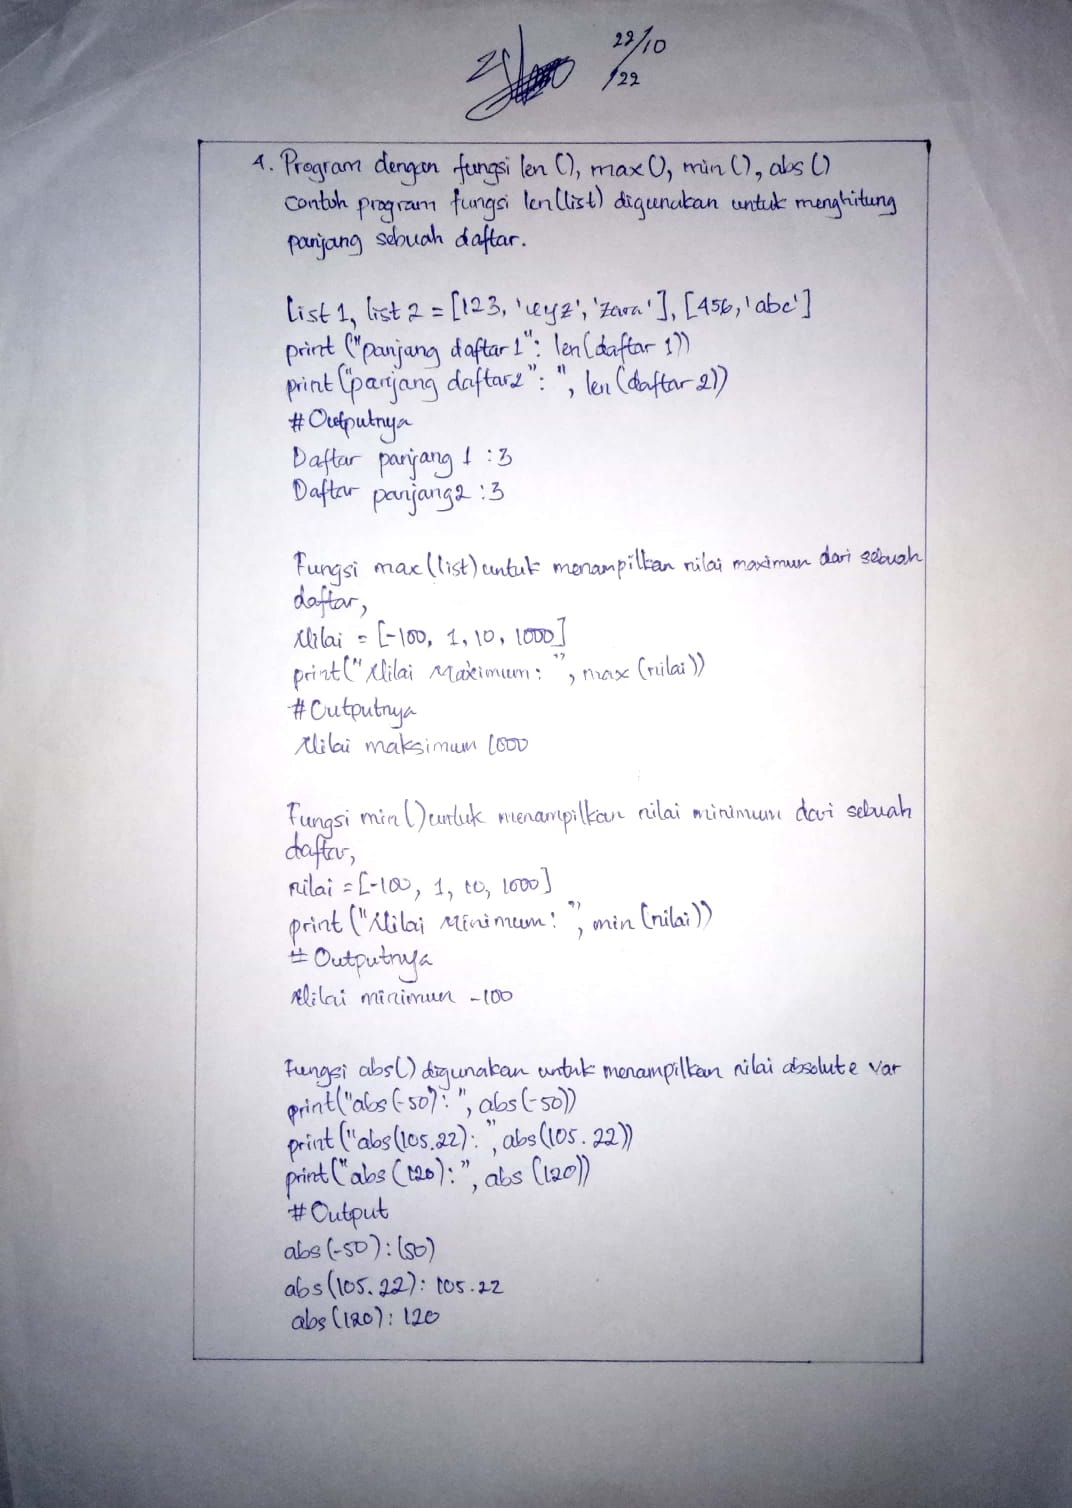 22/10
/22
4. Program dengan fungsi len (), max (), min (), abs ()
Contoh program fungsi len (list) digunakan untuk menghitung
panjang sebuah daftar.
List 1, list 2 = [123, 'xyz', 'zara'], [456, 'abc']
print ("panjang daftar 1": len (daftar 1))
print ("panjang daftar2": ", len (daftar 2))
# Outputnya
Daftar panjang 1 : 3
Daftar panjang2 : 3
Fungsi max (list) untuk menampilkan nilai maximun dari sebuah
daftar,
Nilai = [-100, 1, 10, 1000]
print (" Nilai Maximum: ", max (nilai))
# Outputnya
Nilai maksimum 1000
Fungsi min () untuk menampilkan nilai minimum dari sebuah
daftar,
nilai = [-100, 1, 10, 1000]
print ("Nilai Minimum: ", min (nilai))
# Outputnya
Nilai minimun -100
Fungsi abs () digunakan untuk menampilkan nilai absolute var
print("abs (-50): ", abs (-50))
print ("abs (105.22): ", abs (105.22))
print ("abs (120):", abs (120))
# Output
abs (-50): (50)
abs (105.22): 105.22
abs (120): 120